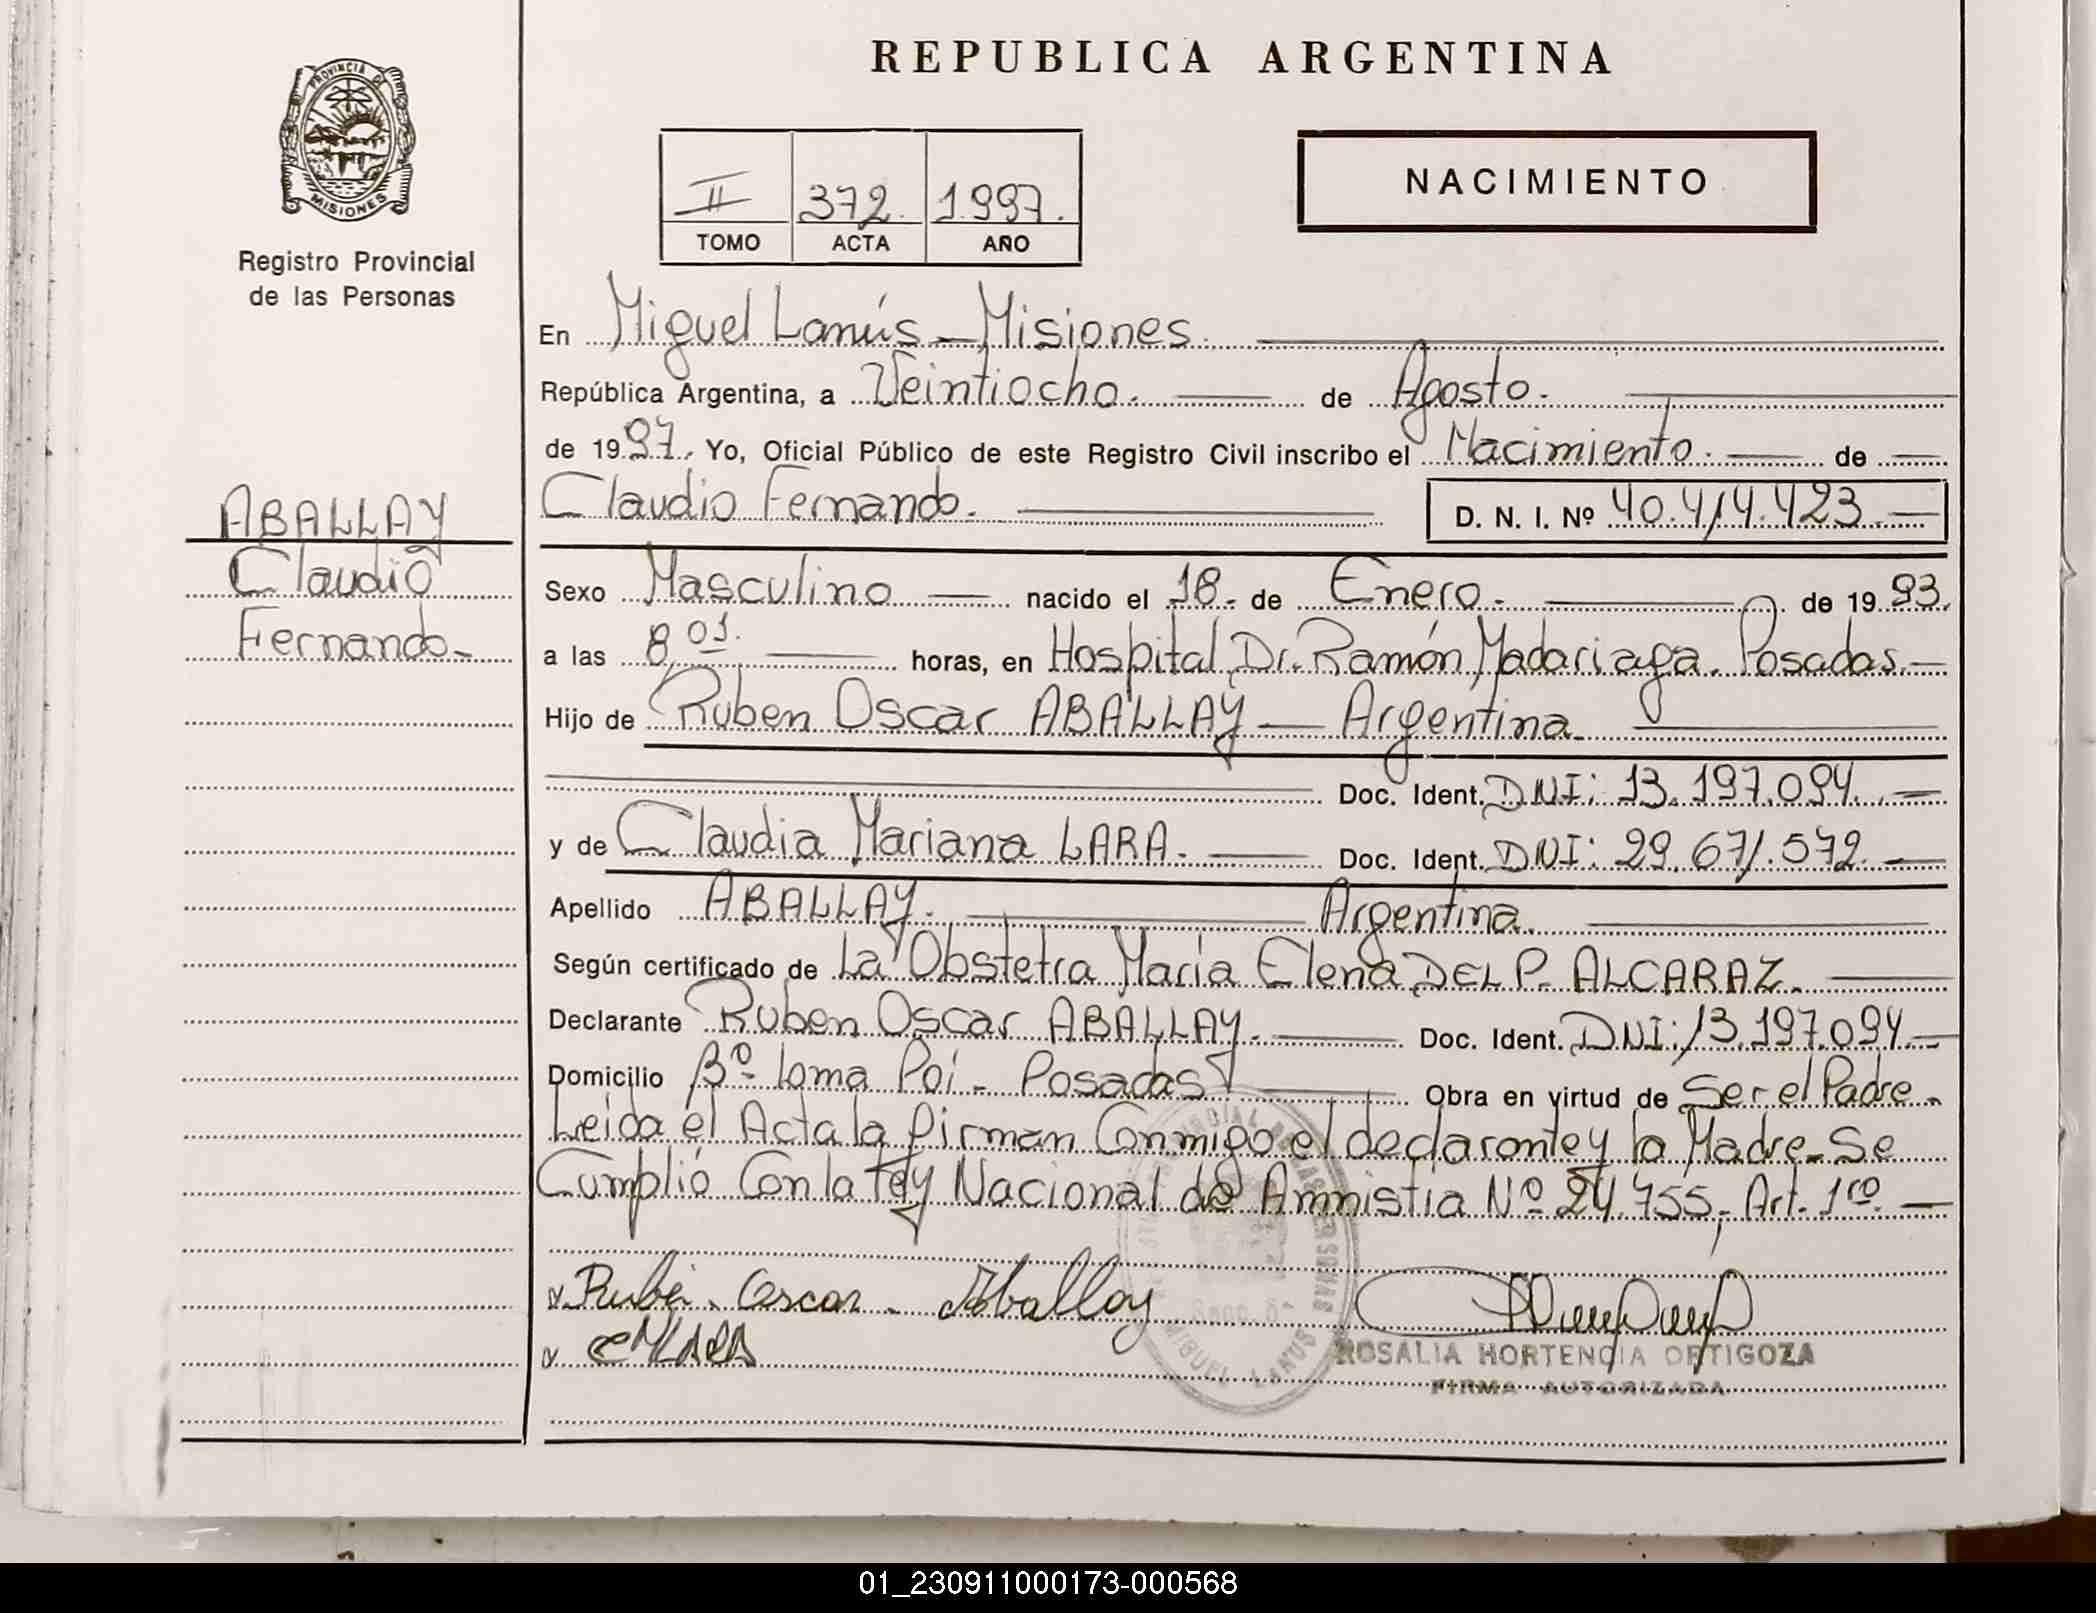 REPUBLICA ARGENTINA
PROVINCIA DE
MISIONES
Registro Provincial
de las Personas
II 372. 1.997.
TOMO ACTA AÑO
NACIMIENTO
En Miguel Lanús - Misiones.
República Argentina, a Veintiocho. de Agosto.
de 1997. Yo, Oficial Público de este Registro Civil inscribo el Nacimiento. de
Claudio Fernando. D. N. I. Nº 40.414.423.
ABALLAY
Claudio
Fernando.
Sexo Masculino nacido el 18. de Enero. de 1993.
a las 8,01. horas, en Hospital Dr. Ramón Madariaga. Posadas.
Hijo de Ruben Oscar ABALLAY — Argentina.
Doc. Ident. DNI: 13.197.094.
y de Claudia Mariana LARA. Doc. Ident. DNI: 29.671.572.
Apellido ABALLAY. Argentina.
Según certificado de La Obstetra María Elena DEL P. ALCARAZ.
Declarante Ruben Oscar ABALLAY. Doc. Ident. DNI: 13.197.094.
Domicilio Bº Loma Poi - Posadas Obra en virtud de Ser el Padre.
Leida el Acta la firman Conmigo el declarante y la Madre. Se
Cumplió Con la Ley Nacional de Amnistia Nº 24.755, Art. 1ro.
x Rubé. Oscar. Aballay
x CMLARA
MIGUEL LANUS
ROSALIA HORTENCIA ORTIGOZA
FIRMA AUTORIZADA
01_230911000173-000568